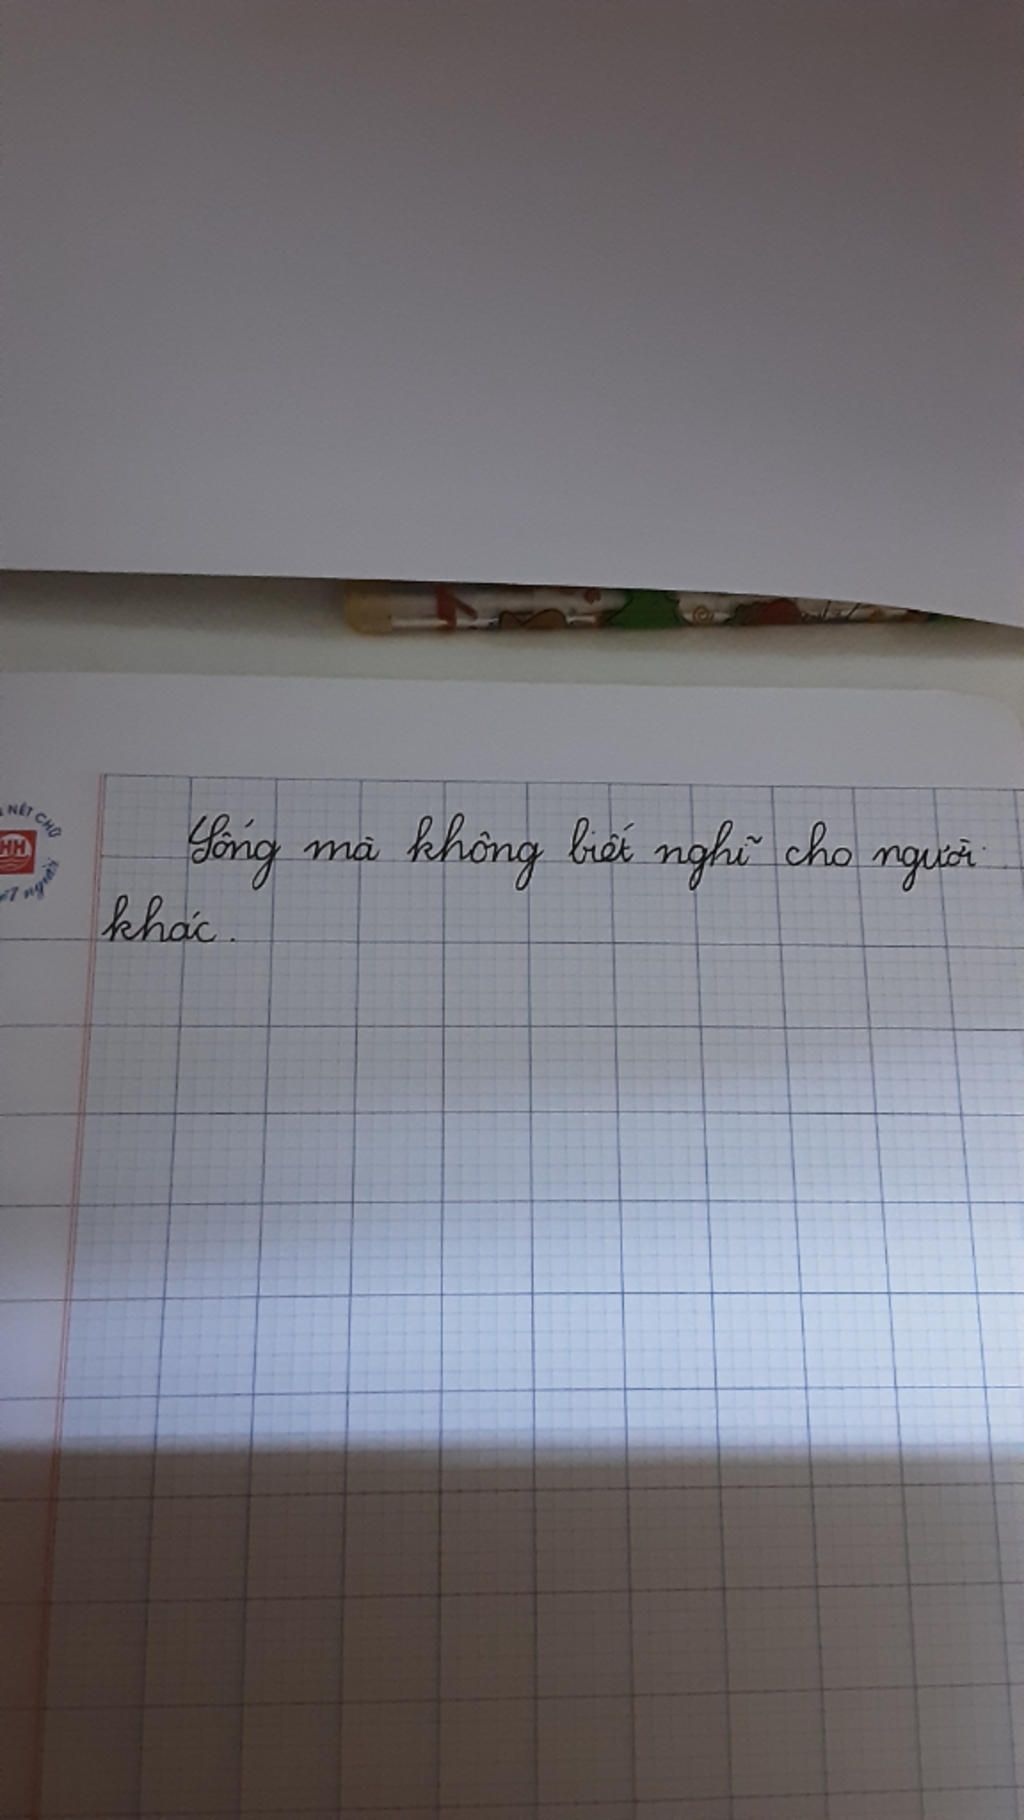 NÉT CHỮ
HH
nết người
Sống mà không biết nghĩ cho người
khác.